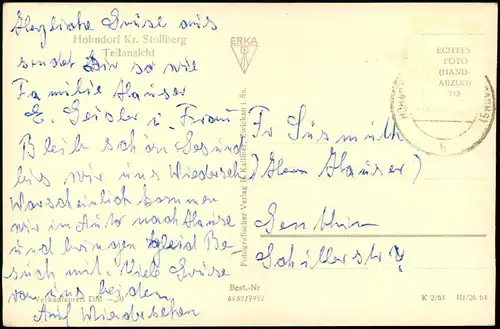 Herzliche Grüße aus
Hohndorf Kr. Stollberg
Teilansicht
sendet Dir so wie
Familie Hauser
E. Geisler u. Frau
Bleib schön Gesund
bis wir uns Wiedersehn
Warscheinlich kommen
wir im Auto nach Hause
und bringen gleich Be-
such mit. Viele Grüse
von uns beiden
Auf Wiedersehen
Verkaufspreis DM -,20
ERKA
Fotografischer Verlag R. Kallmer, Zwickau i. Sa.
Best.-Nr
6462/9952
ECHTES
FOTO
(HAND-
ABZUG)
Fr Süsmuth
(Herm Hauser)
Genthin
Schillerstr
K 2/61 III/26 64